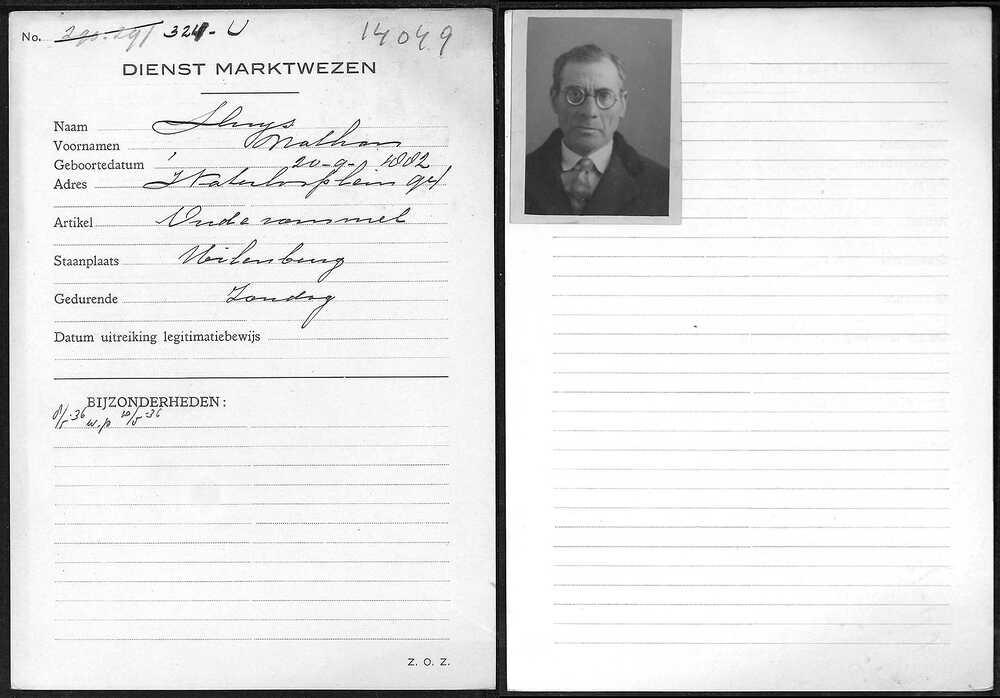 No. 324-U 14049
DIENST MARKTWEZEN
Naam Sluys
Voornamen Nathan
Geboortedatum 20-9-1882
Adres Waterlooplein 98
Artikel Oude rommel
Staanplaats Uilenburg
Gedurende Zondag
Datum uitreiking legitimatiebewijs
BIJZONDERHEDEN:
8/5-36 w.p 10/5-36
Z. O. Z.